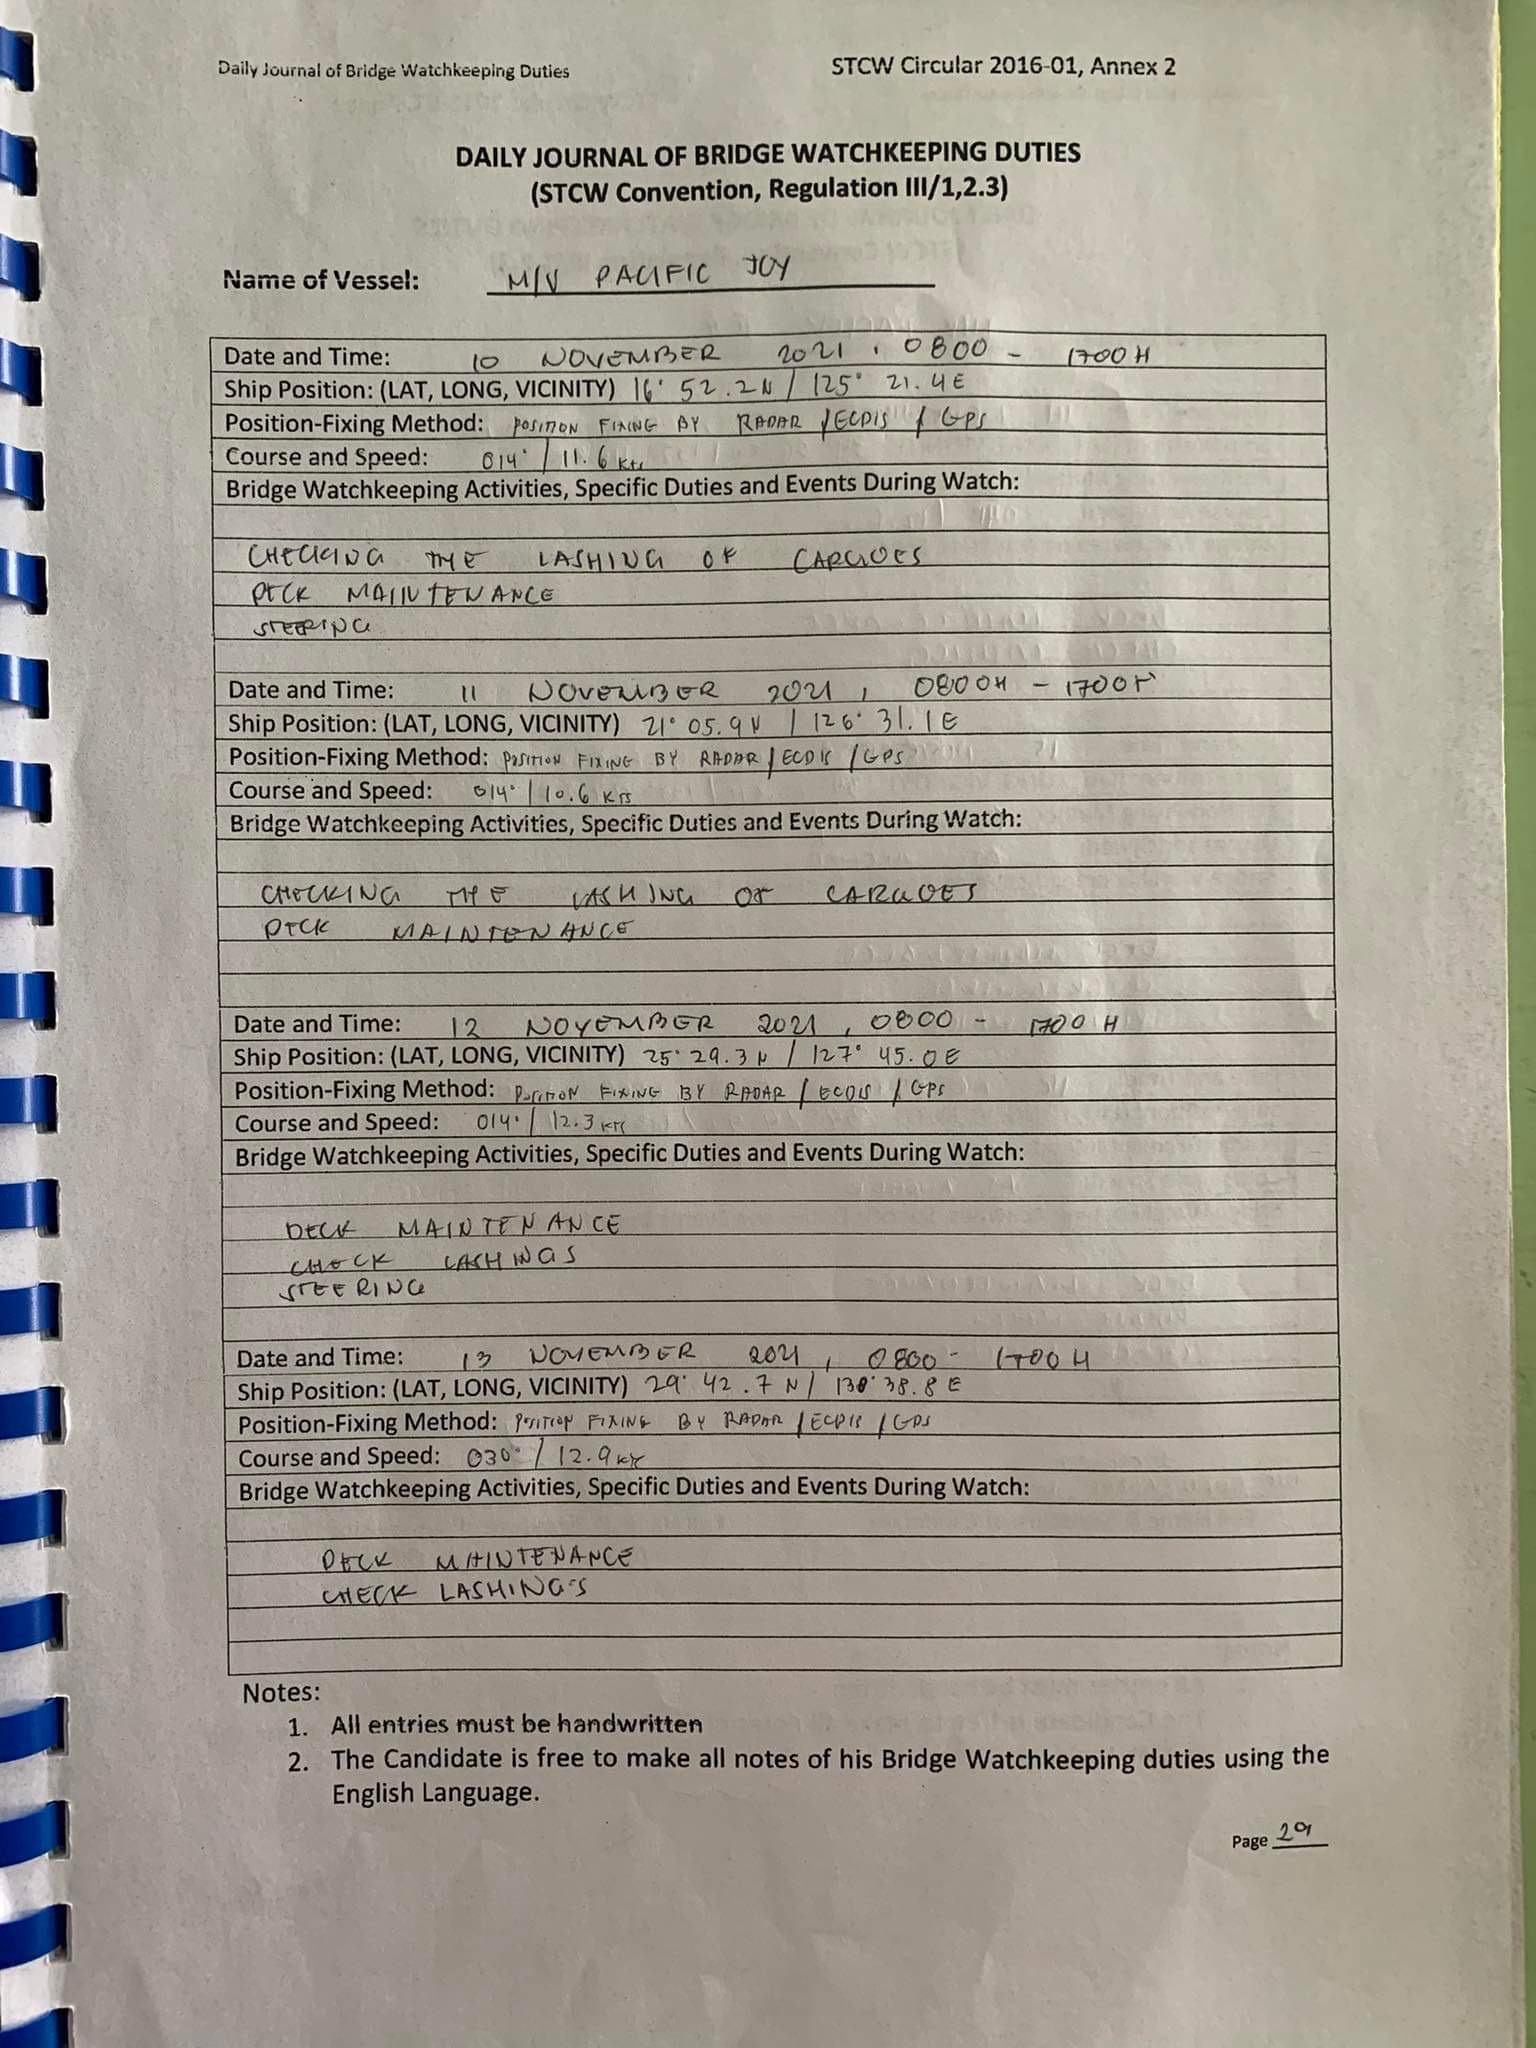 Daily Journal of Bridge Watchkeeping Duties STCW Circular 2016-01, Annex 2
DAILY JOURNAL OF BRIDGE WATCHKEEPING DUTIES
(STCW Convention, Regulation III/1,2.3)
Name of Vessel: M/V PACIFIC JOY
Date and Time: 10 NOVEMBER 2021, 0800 - 1700H
Ship Position: (LAT, LONG, VICINITY) 16° 52.2N / 125° 21.4E
Position-Fixing Method: POSITION FIXING BY RADAR / ECDIS / GPS
Course and Speed: 014° / 11.6 Kts
Bridge Watchkeeping Activities, Specific Duties and Events During Watch:
CHECKING THE LASHING OF CARGOES
DECK MAINTENANCE
STEERING
Date and Time: 11 NOVEMBER 2021, 0800H - 1700H
Ship Position: (LAT, LONG, VICINITY) 21° 05.9N / 126° 31.1E
Position-Fixing Method: POSITION FIXING BY RADAR / ECDIS / GPS
Course and Speed: 014° / 10.6 KTS
Bridge Watchkeeping Activities, Specific Duties and Events During Watch:
CHECKING THE LASHING OF CARGOES
DECK MAINTENANCE
Date and Time: 12 NOVEMBER 2021, 0800 - 1700 H
Ship Position: (LAT, LONG, VICINITY) 25° 29.3N / 127° 45.0E
Position-Fixing Method: POSITION FIXING BY RADAR / ECDIS / GPS
Course and Speed: 014° / 12.3 KTS
Bridge Watchkeeping Activities, Specific Duties and Events During Watch:
DECK MAINTENANCE
CHECK LASHINGS
STEERING
Date and Time: 13 NOVEMBER 2021, 0800 - 1700H
Ship Position: (LAT, LONG, VICINITY) 29° 42.7N / 130° 38.8E
Position-Fixing Method: POSITION FIXING BY RADAR / ECDIS / GPS
Course and Speed: 030° / 12.9
Bridge Watchkeeping Activities, Specific Duties and Events During Watch:
DECK MAINTENANCE
CHECK LASHING'S
Notes:
1. All entries must be handwritten
2. The Candidate is free to make all notes of his Bridge Watchkeeping duties using the
English Language.
Page 29